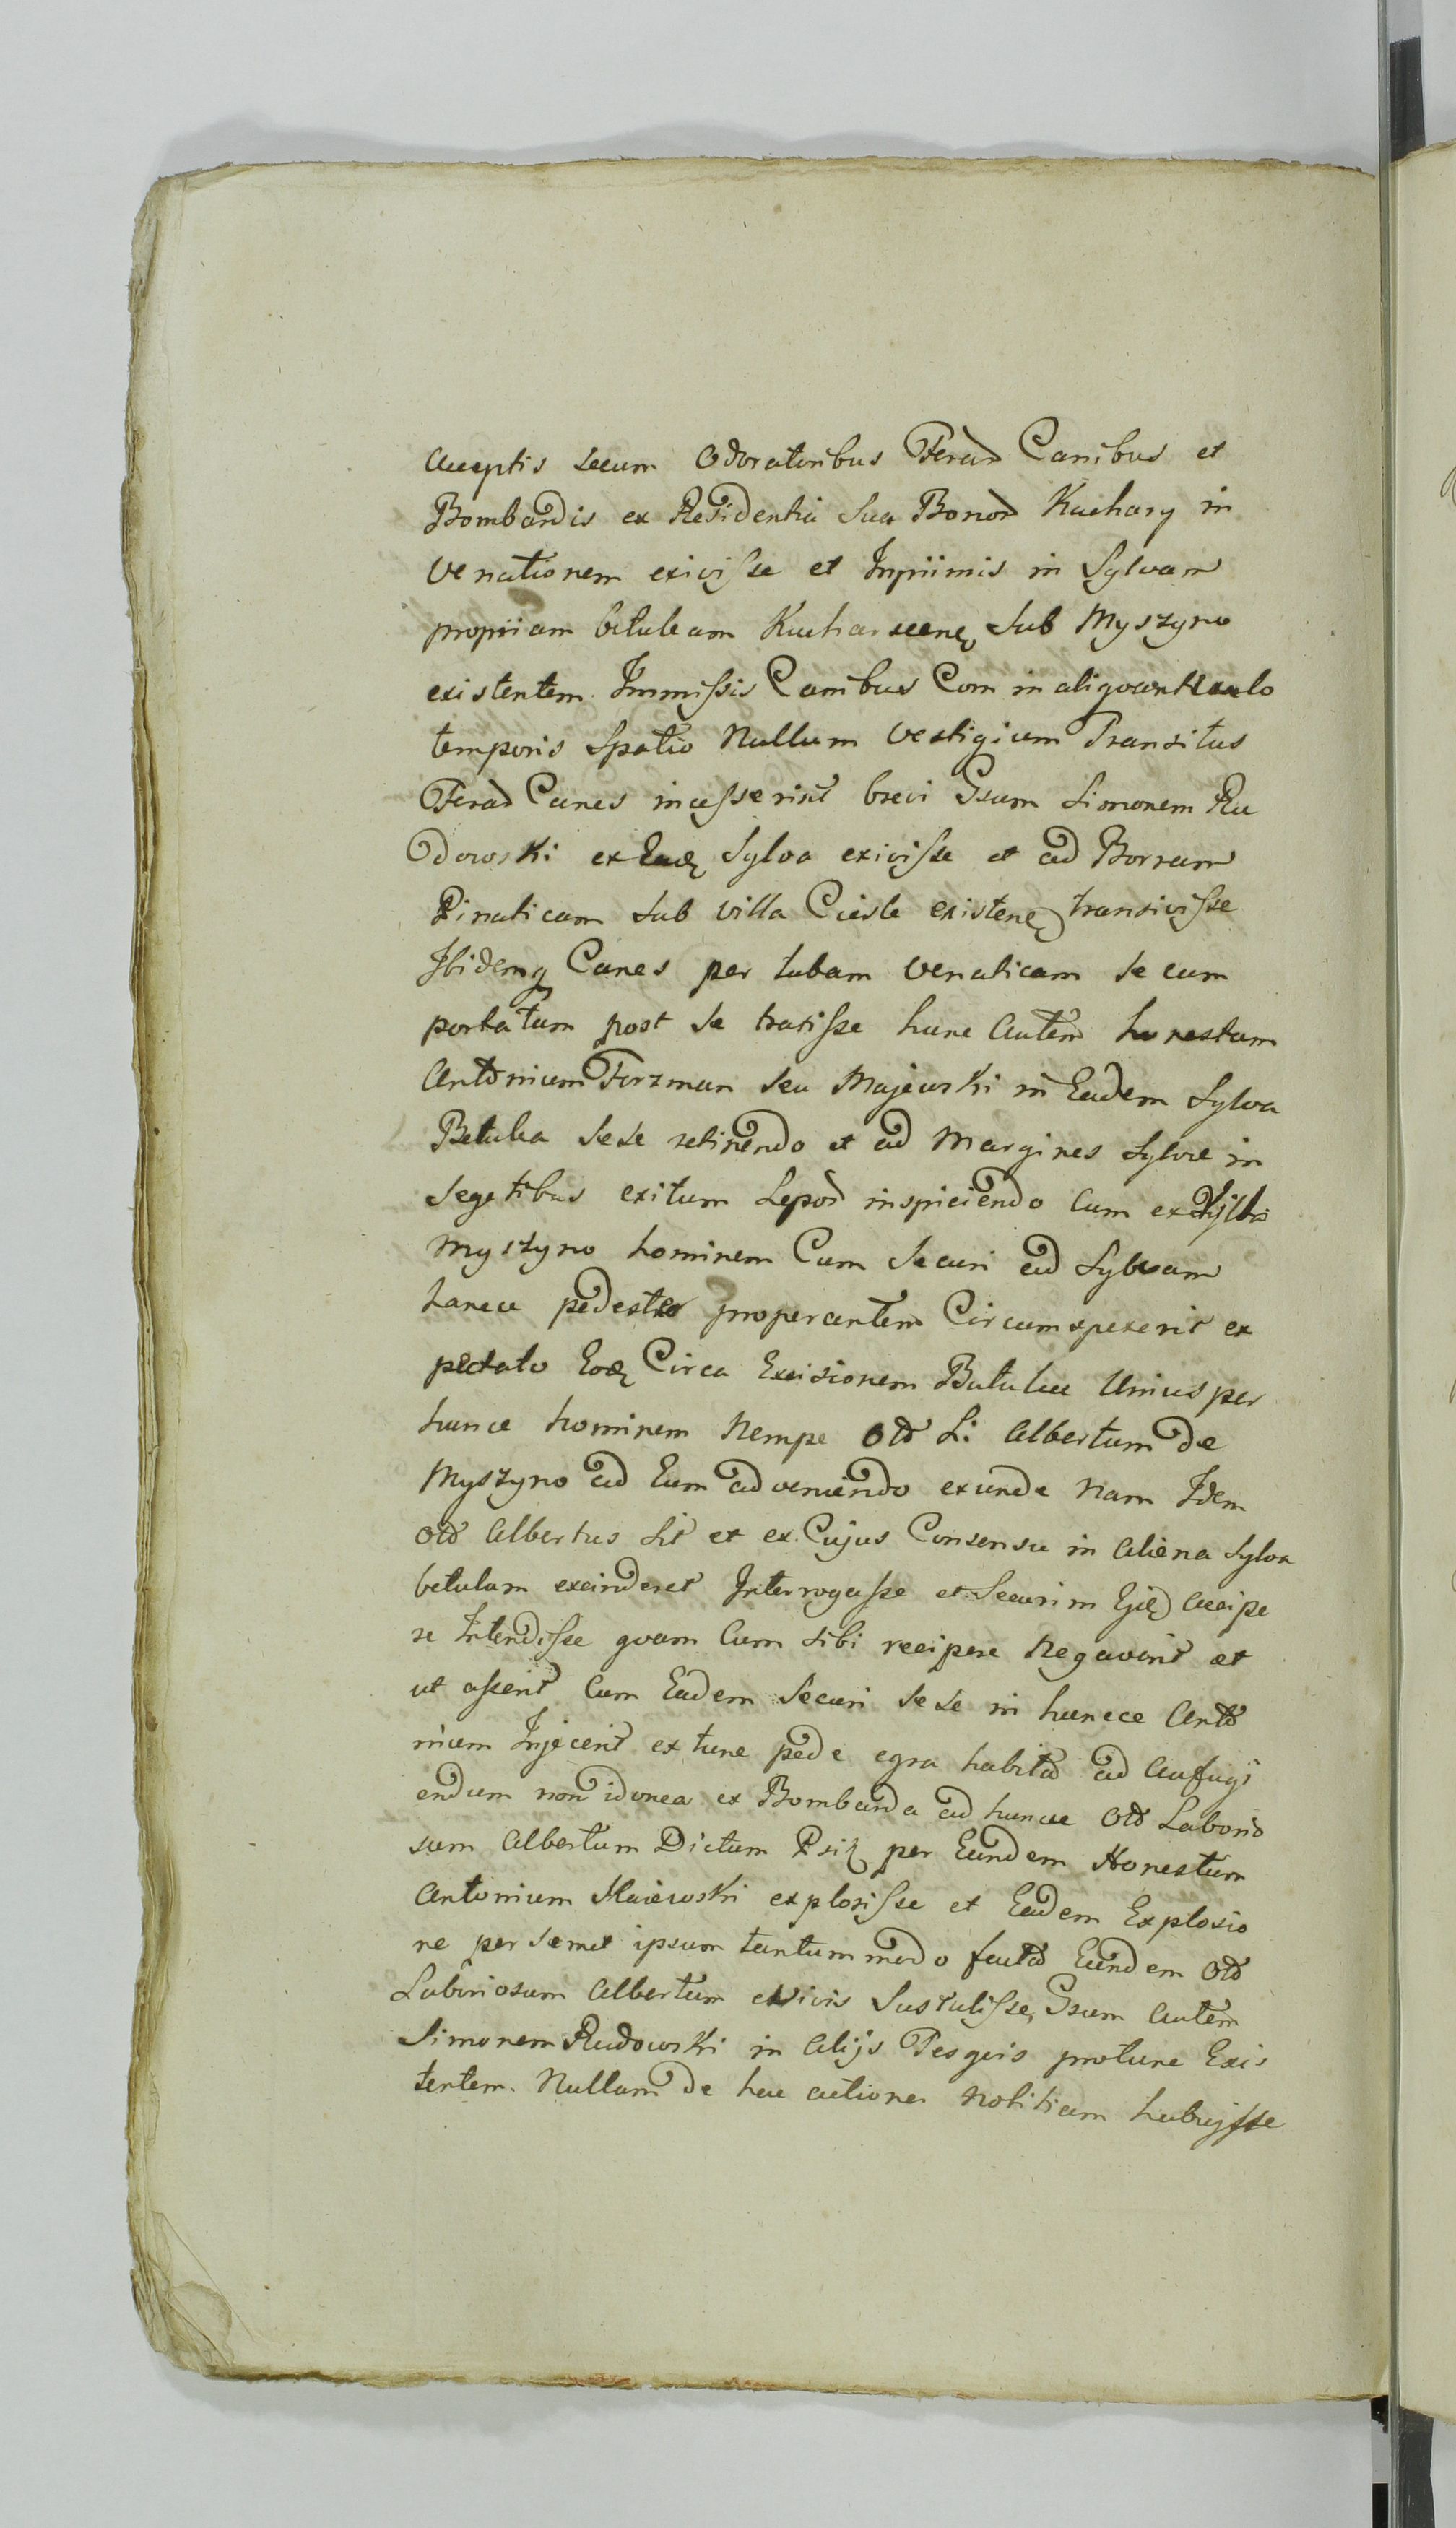 acceptis secum Odoratoribus Ferar Canibus et
Bombardis ex Residentia sua Bonor Kuchary in
Venationem exivisse et Inprimis in Sylvam
propriam betuleam Kucharscens Sub Myszyno
existentem Immissis Canibus Com in aliqvantulo
temporis Spatio Nullum Vestigium Transitus
Ferar Canes incesserint brevi Gsum Simonem Ru
dowski ex Ead Sylva exivisse et ad Borram
Pinaticam sub villa Ciesle existen transivisse
Ibidemq Canes per tubam venaticam se cum
portatam post se traxisse hunc autem honestum
Antonium Forzman seu Majewski in Eadem Sylva
Betulea sese retinendo et ad Margines Sylvae in
Segetibus exitum Lepor inspiciendo Cum ex Villa
Myszyno hominem Cum Securi ad Sylvam
hancce pedestre properantem Circumspexerit ex
pectato Eod Circa Excisionem Betulae Unius per
huncce hominem Nempe Olt L: Albertum de
Myszyno ad Eum adveniendo exunde nam Idem
Olt Albertus sit et ex Cujus Consensu in Aliena Sylva
betulam excinderet Interrogasse et Securim Ejd accipe
re Intendisse qvam Cum sibi recipere Negaverit et
ut asserit Cum Eadem Securi sese in huncce Anto
nium Injecerit ex tunc pede egra habita ad Aufugi
endum non idonea ex Bombarda ad huncce Olt Laborio
sum Albertum Dictum per Eundem Honestum
Antonium Maiewski explosisse et Eadem Explosio
ne per semet ipsum tantummodo facta Eundem Olt
Laboriosum Albertum e Vivis Sustulisse, Gsum autem
Simonem Rudowski in Alijs Tesqvis protunc Exis
tentem. Nullam de hac actione Notitiam habuisse